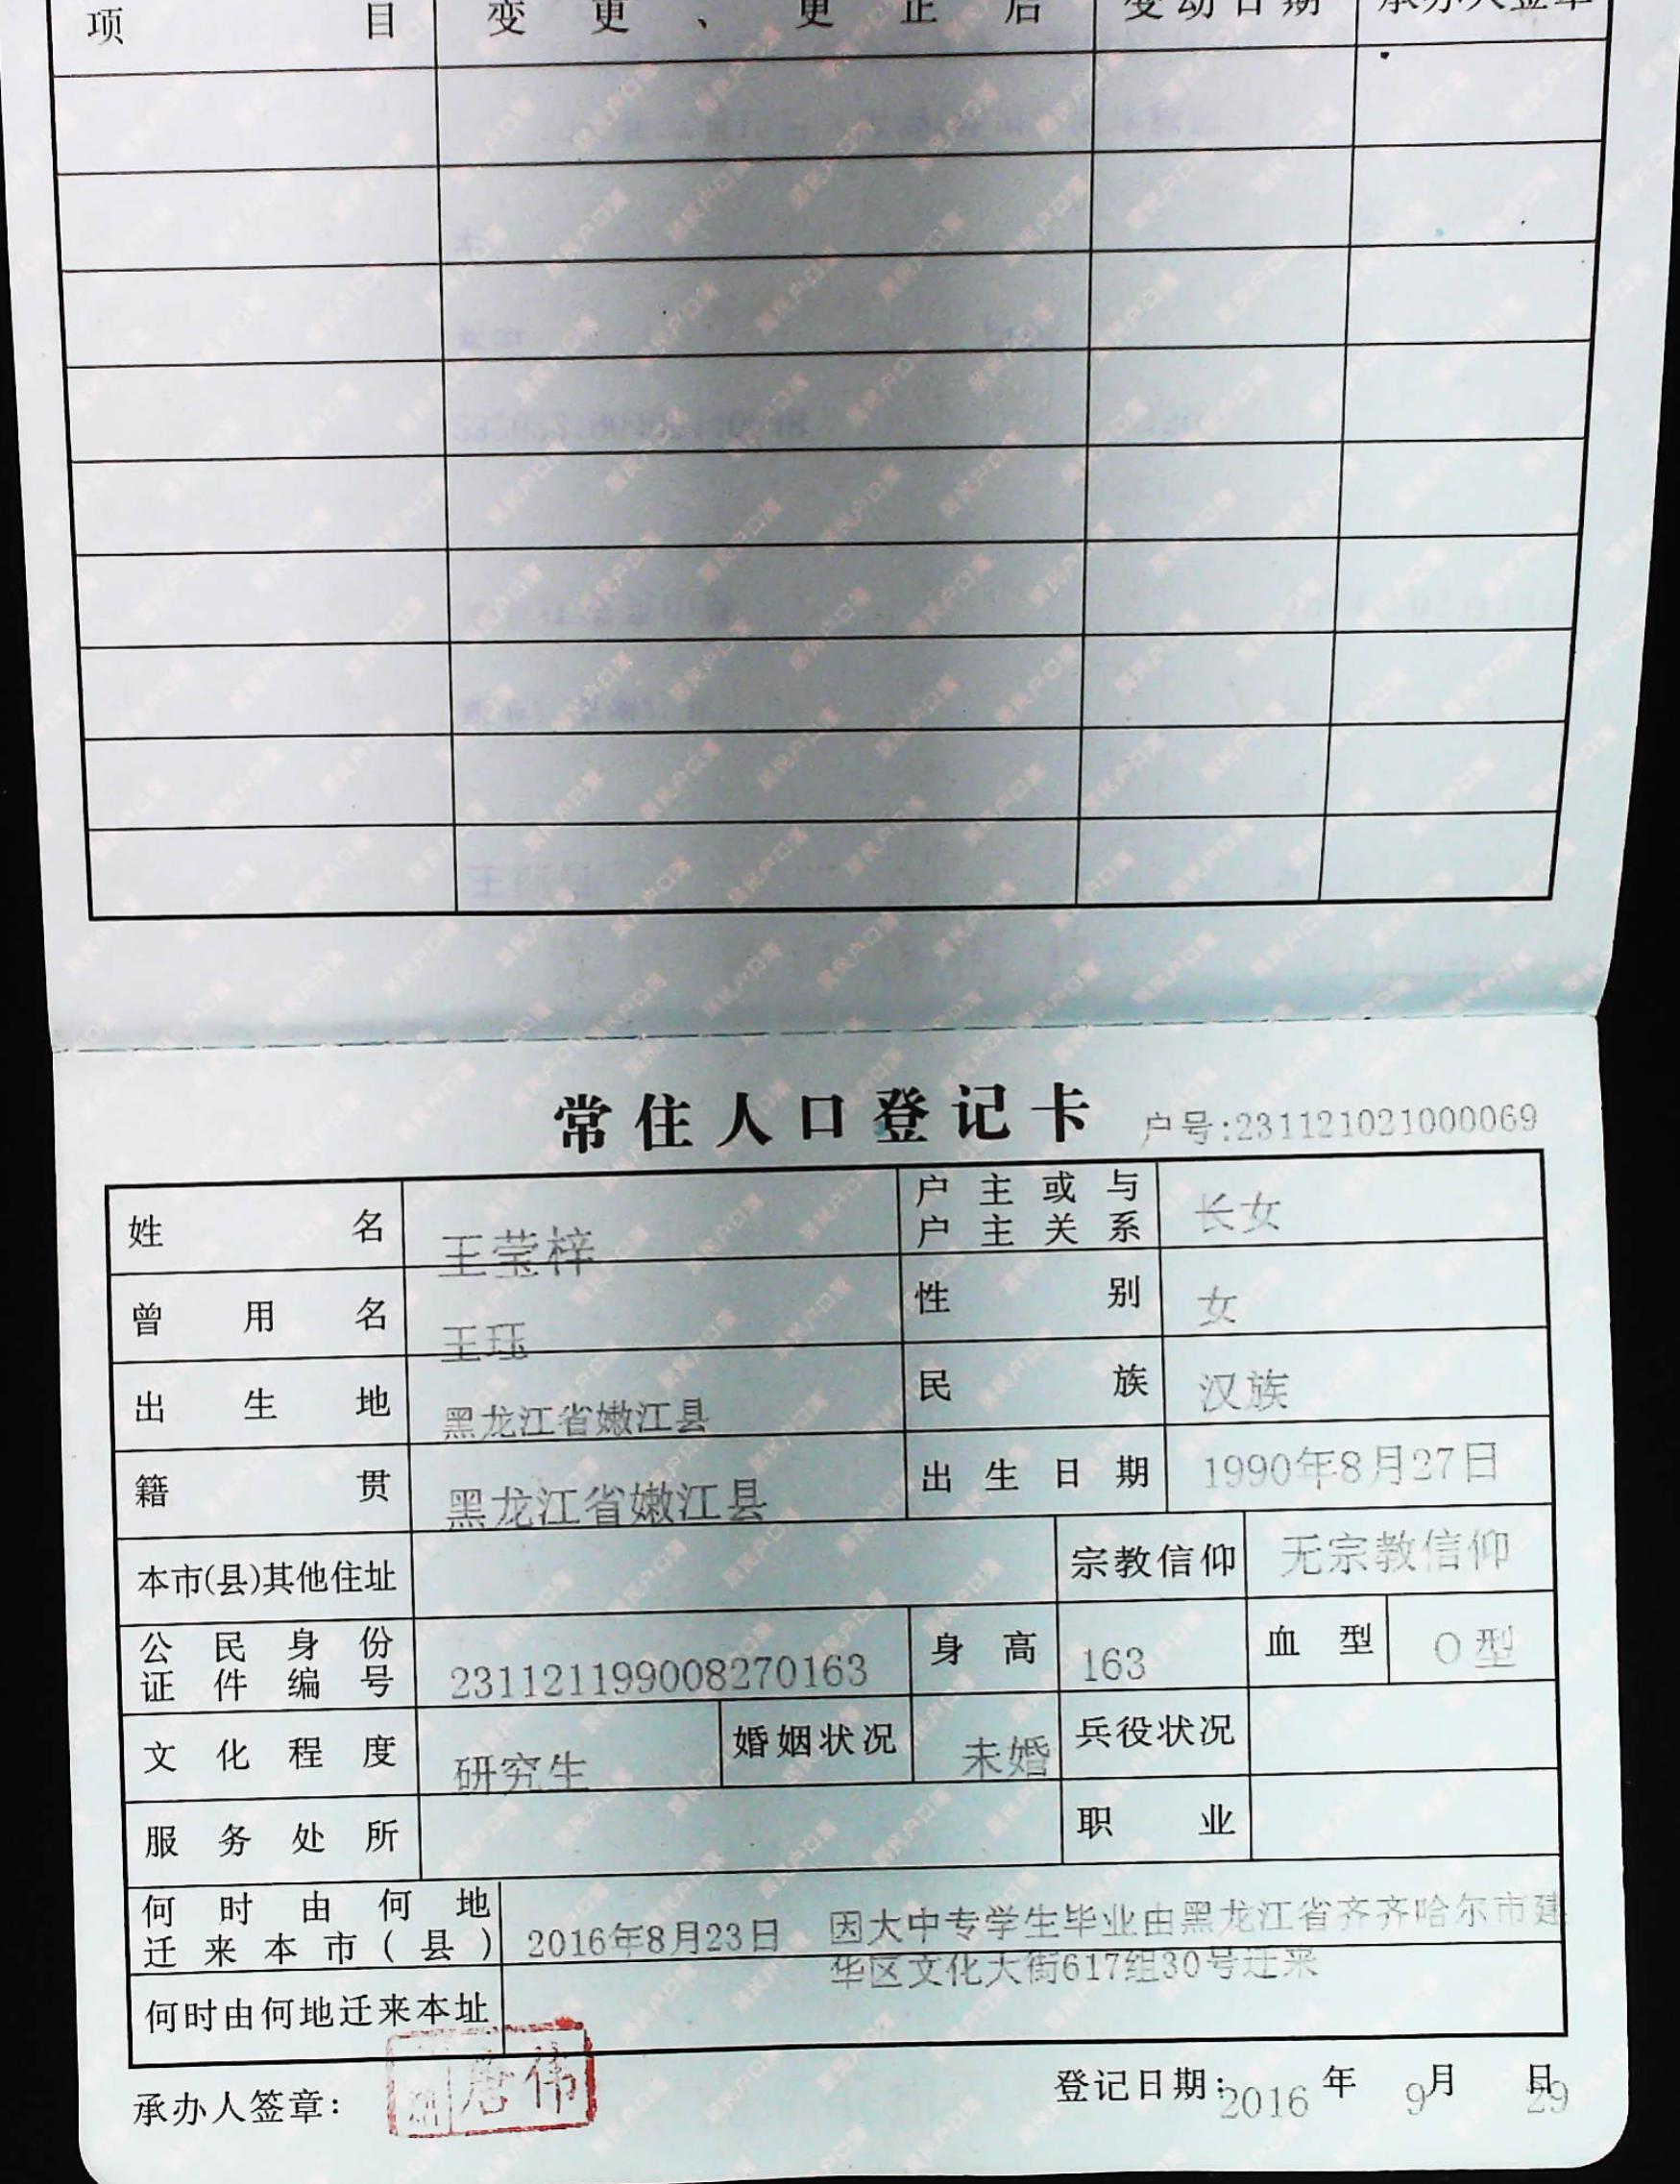 项 目 变 更 、 更 正 后 变动日期 承办人签章
常住人口登记卡 户号:231121021000069
姓 名 王莹梓 户主或与户主关系 长女
曾 用 名 王珏 性 别 女
出 生 地 黑龙江省嫩江县 民 族 汉族
籍 贯 黑龙江省嫩江县 出生日期 1990年8月27日
本市(县)其他住址 宗教信仰 无宗教信仰
公民身份证件编号 231121199008270163 身高 163 血型 O型
文化程度 研究生 婚姻状况 未婚 兵役状况
服务处所 职 业
何时由何地迁来本市(县) 2016年8月23日 因大中专学生毕业由黑龙江省齐齐哈尔市建
华区文化大街617组30号迁来
何时由何地迁来本址
承办人签章: 唐伟 登记日期:2016 年 9月 29日